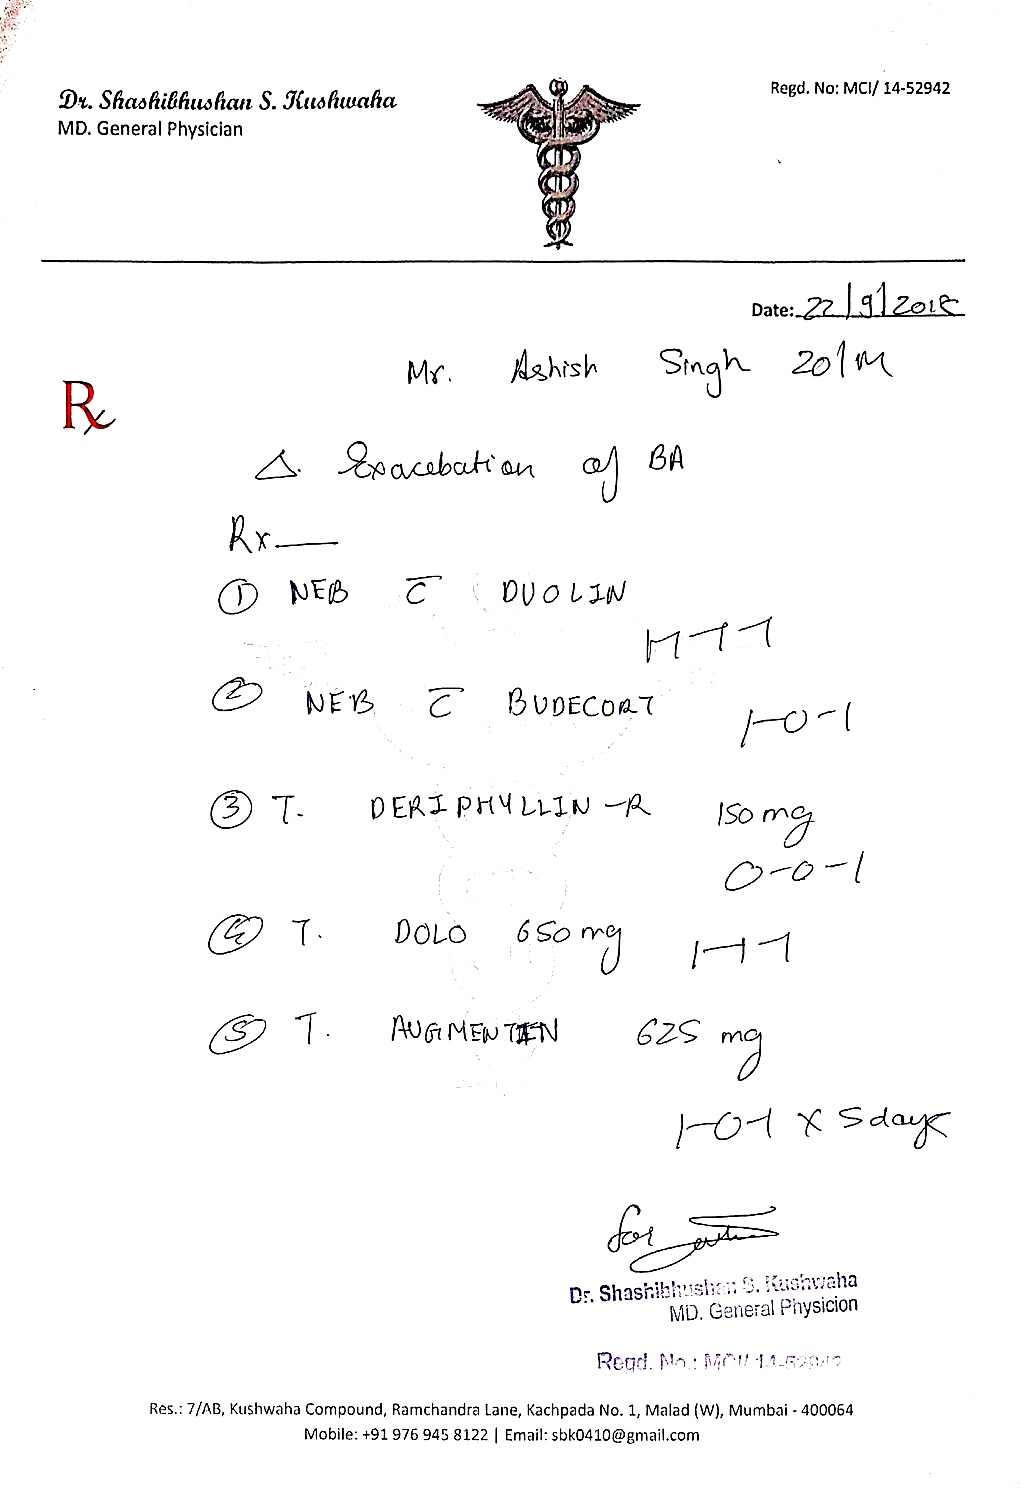 Dr. Shashibhushan S. Kushwaha
MD. General Physician
Regd. No: MCI/ 14-52942
Date: 22/9/2018
Mr. Ashish Singh 20/M
Rx
Δ. Exacebation of BA
Rx—
① NEB c̅ DUOLIN
1-1-1
② NEB c̅ BUDECORT
1-0-1
③ T. DERIPHYLLIN-R 150 mg
0-0-1
④ T. DOLO 650 mg 1-1-1
⑤ T. AUGMENTIN 625 mg
1-0-1 x 5 days
for
Dr. Shashibhushan S. Kushwaha
MD. General Physicion
Regd. No.: MCI/ 14-52942
Res.: 7/AB, Kushwaha Compound, Ramchandra Lane, Kachpada No. 1, Malad (W), Mumbai - 400064
Mobile: +91 976 945 8122 | Email: sbk0410@gmail.com